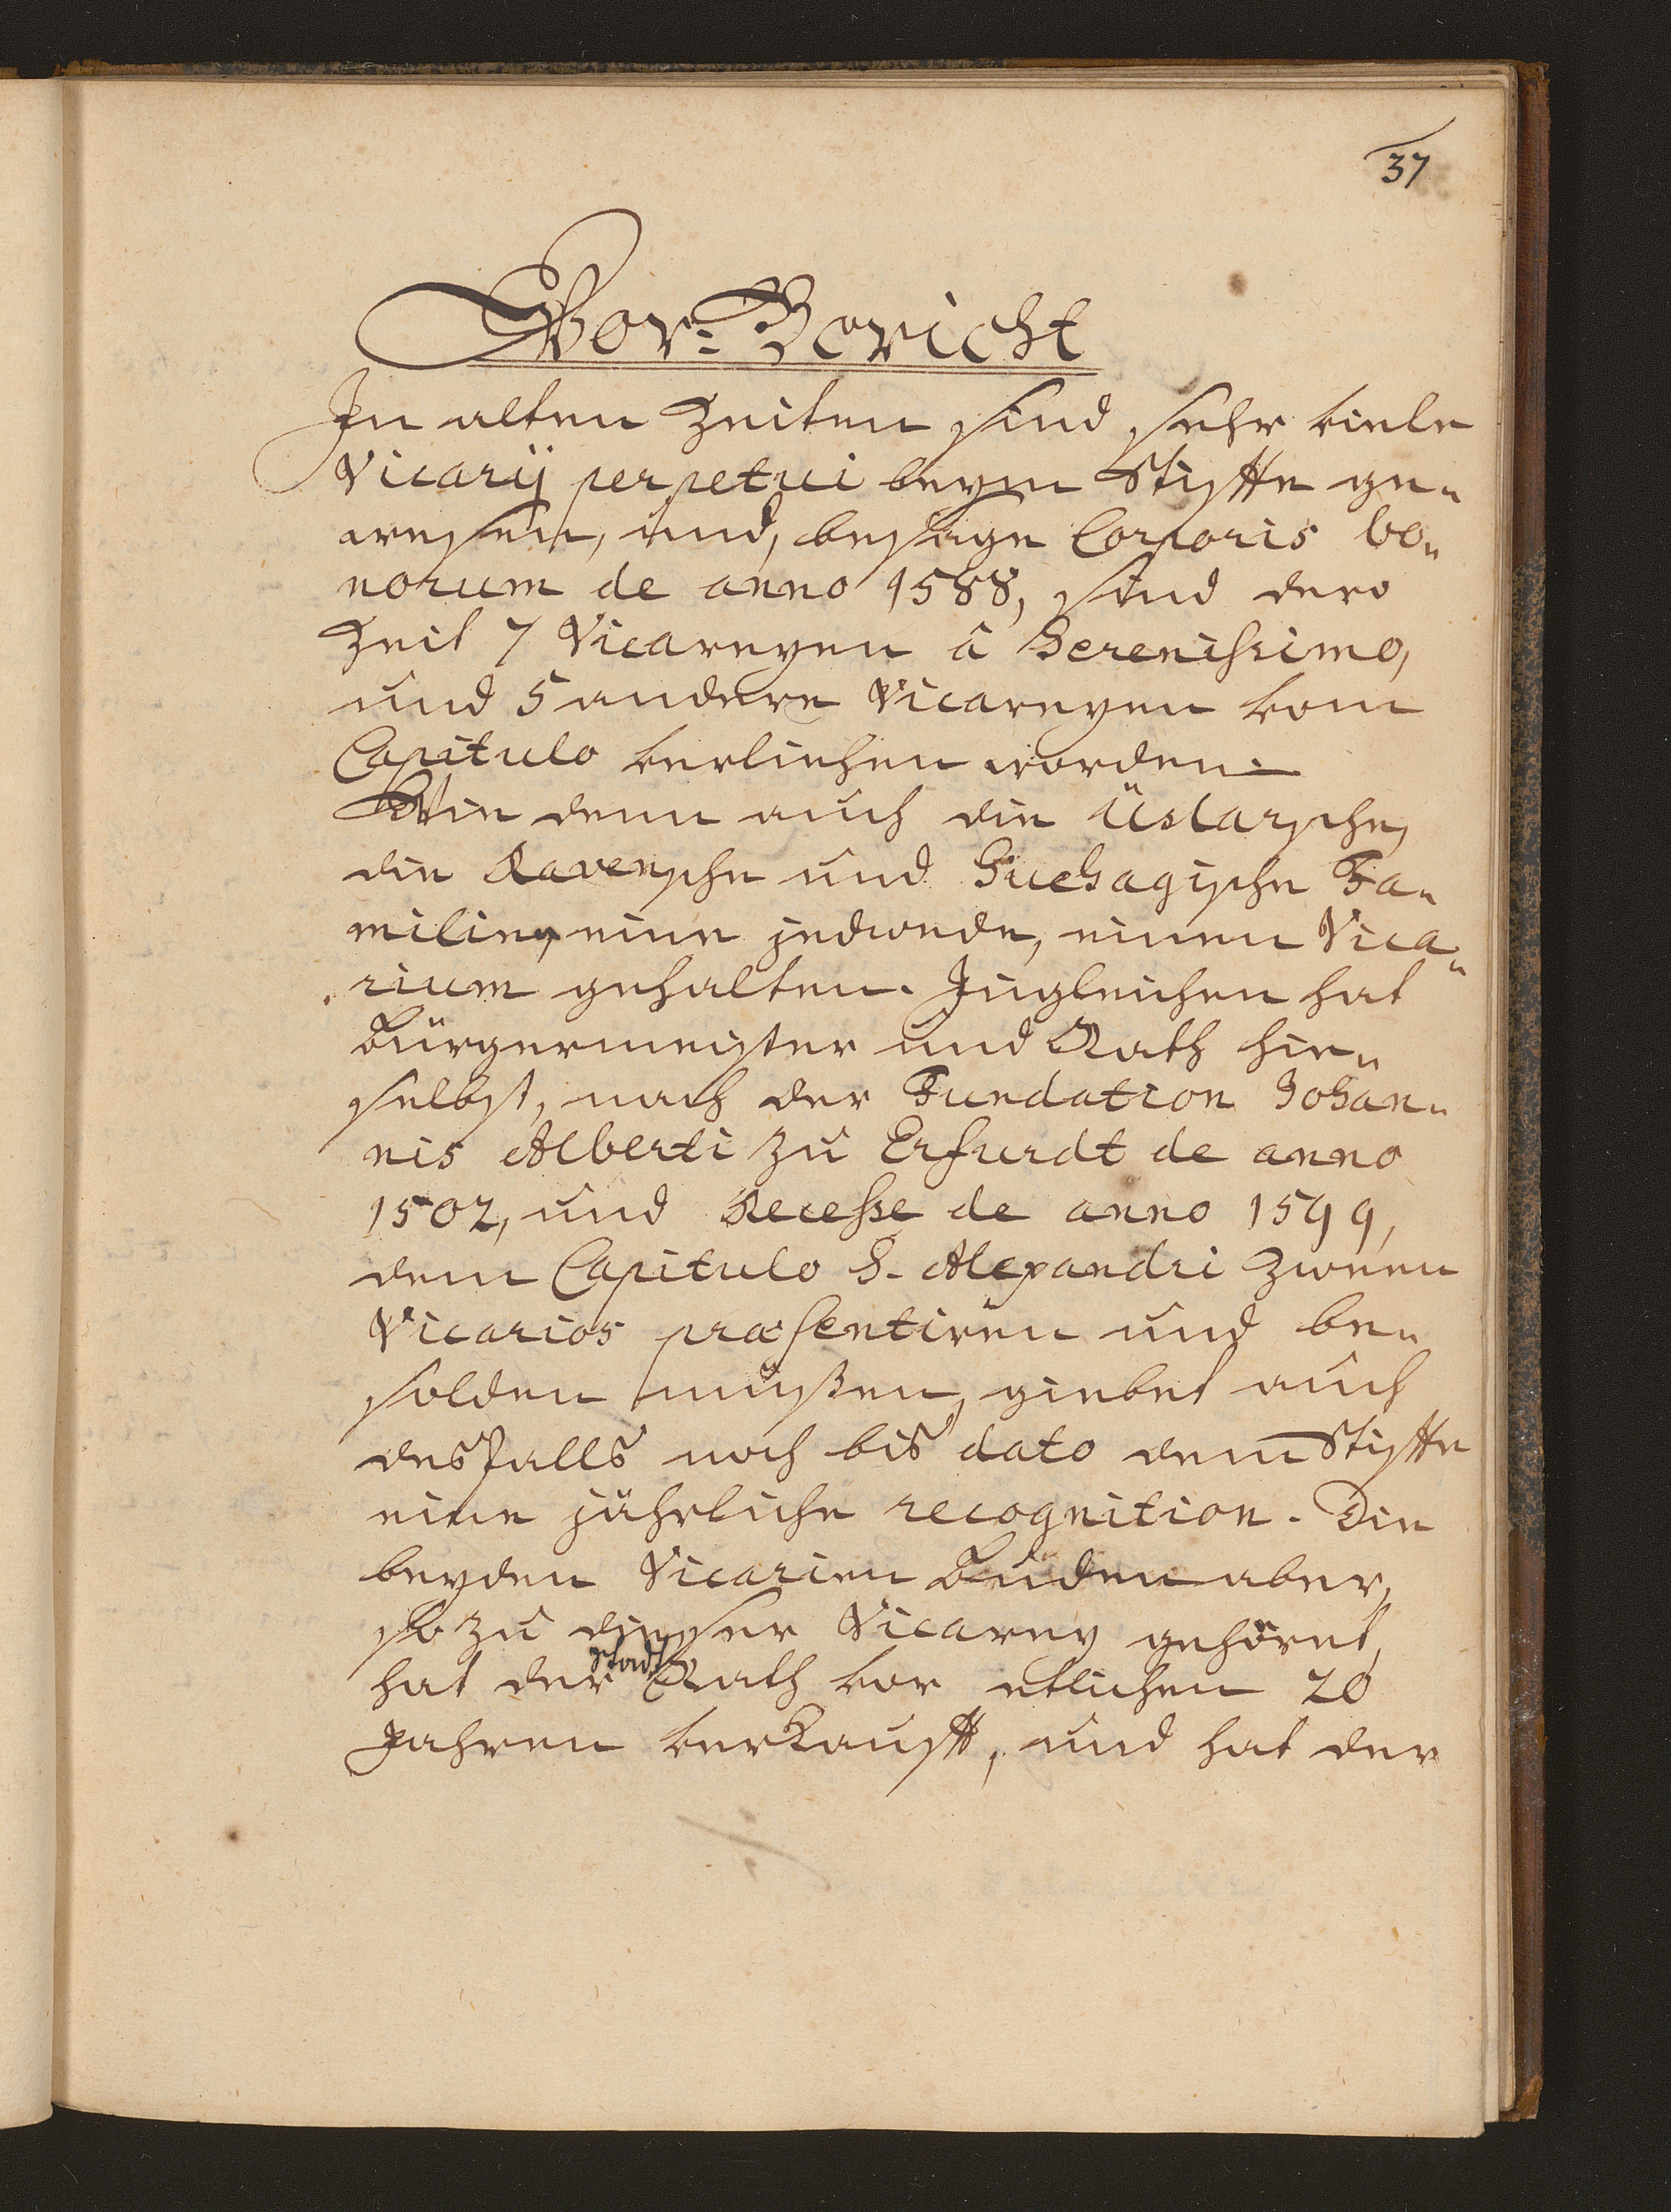 37
Vor-Bericht
In alten Zeiten sind sehr viele
Vicarij perpetui beym Stiffte ge-
wesen, und, besage Corporis bo-
norum de anno 1588, sind dero
Zeit 7 Vicareyen â Serenissimo,
und 5 andere Vicareyen vom
Capitulo verliehen worden.
Wie denn auch die Üslarsche,
die Ravensche und Guehagische Fa-
milien, eine jedwede, einen Vica-
rium gehalten. Ingleichen hat
Bürgermeister und Rath hie-
selbst, nach der Fundation Johan-
nis Alberti zu Erfurdt de anno
1502, und Recesse de anno 1599,
dem Capitulo S. Alexandri zween
Vicarios præsentiren und be-
solden müßen, giebet auch
desfalls noch bis dato dem Stiffte
eine jährliche recognition. Die
beyden Vicarien Buden aber,
so zu dieser Vicarey gehöret,
hat der Stadt Rath vor etlichen 20
Jahren verkaufft, und hat der